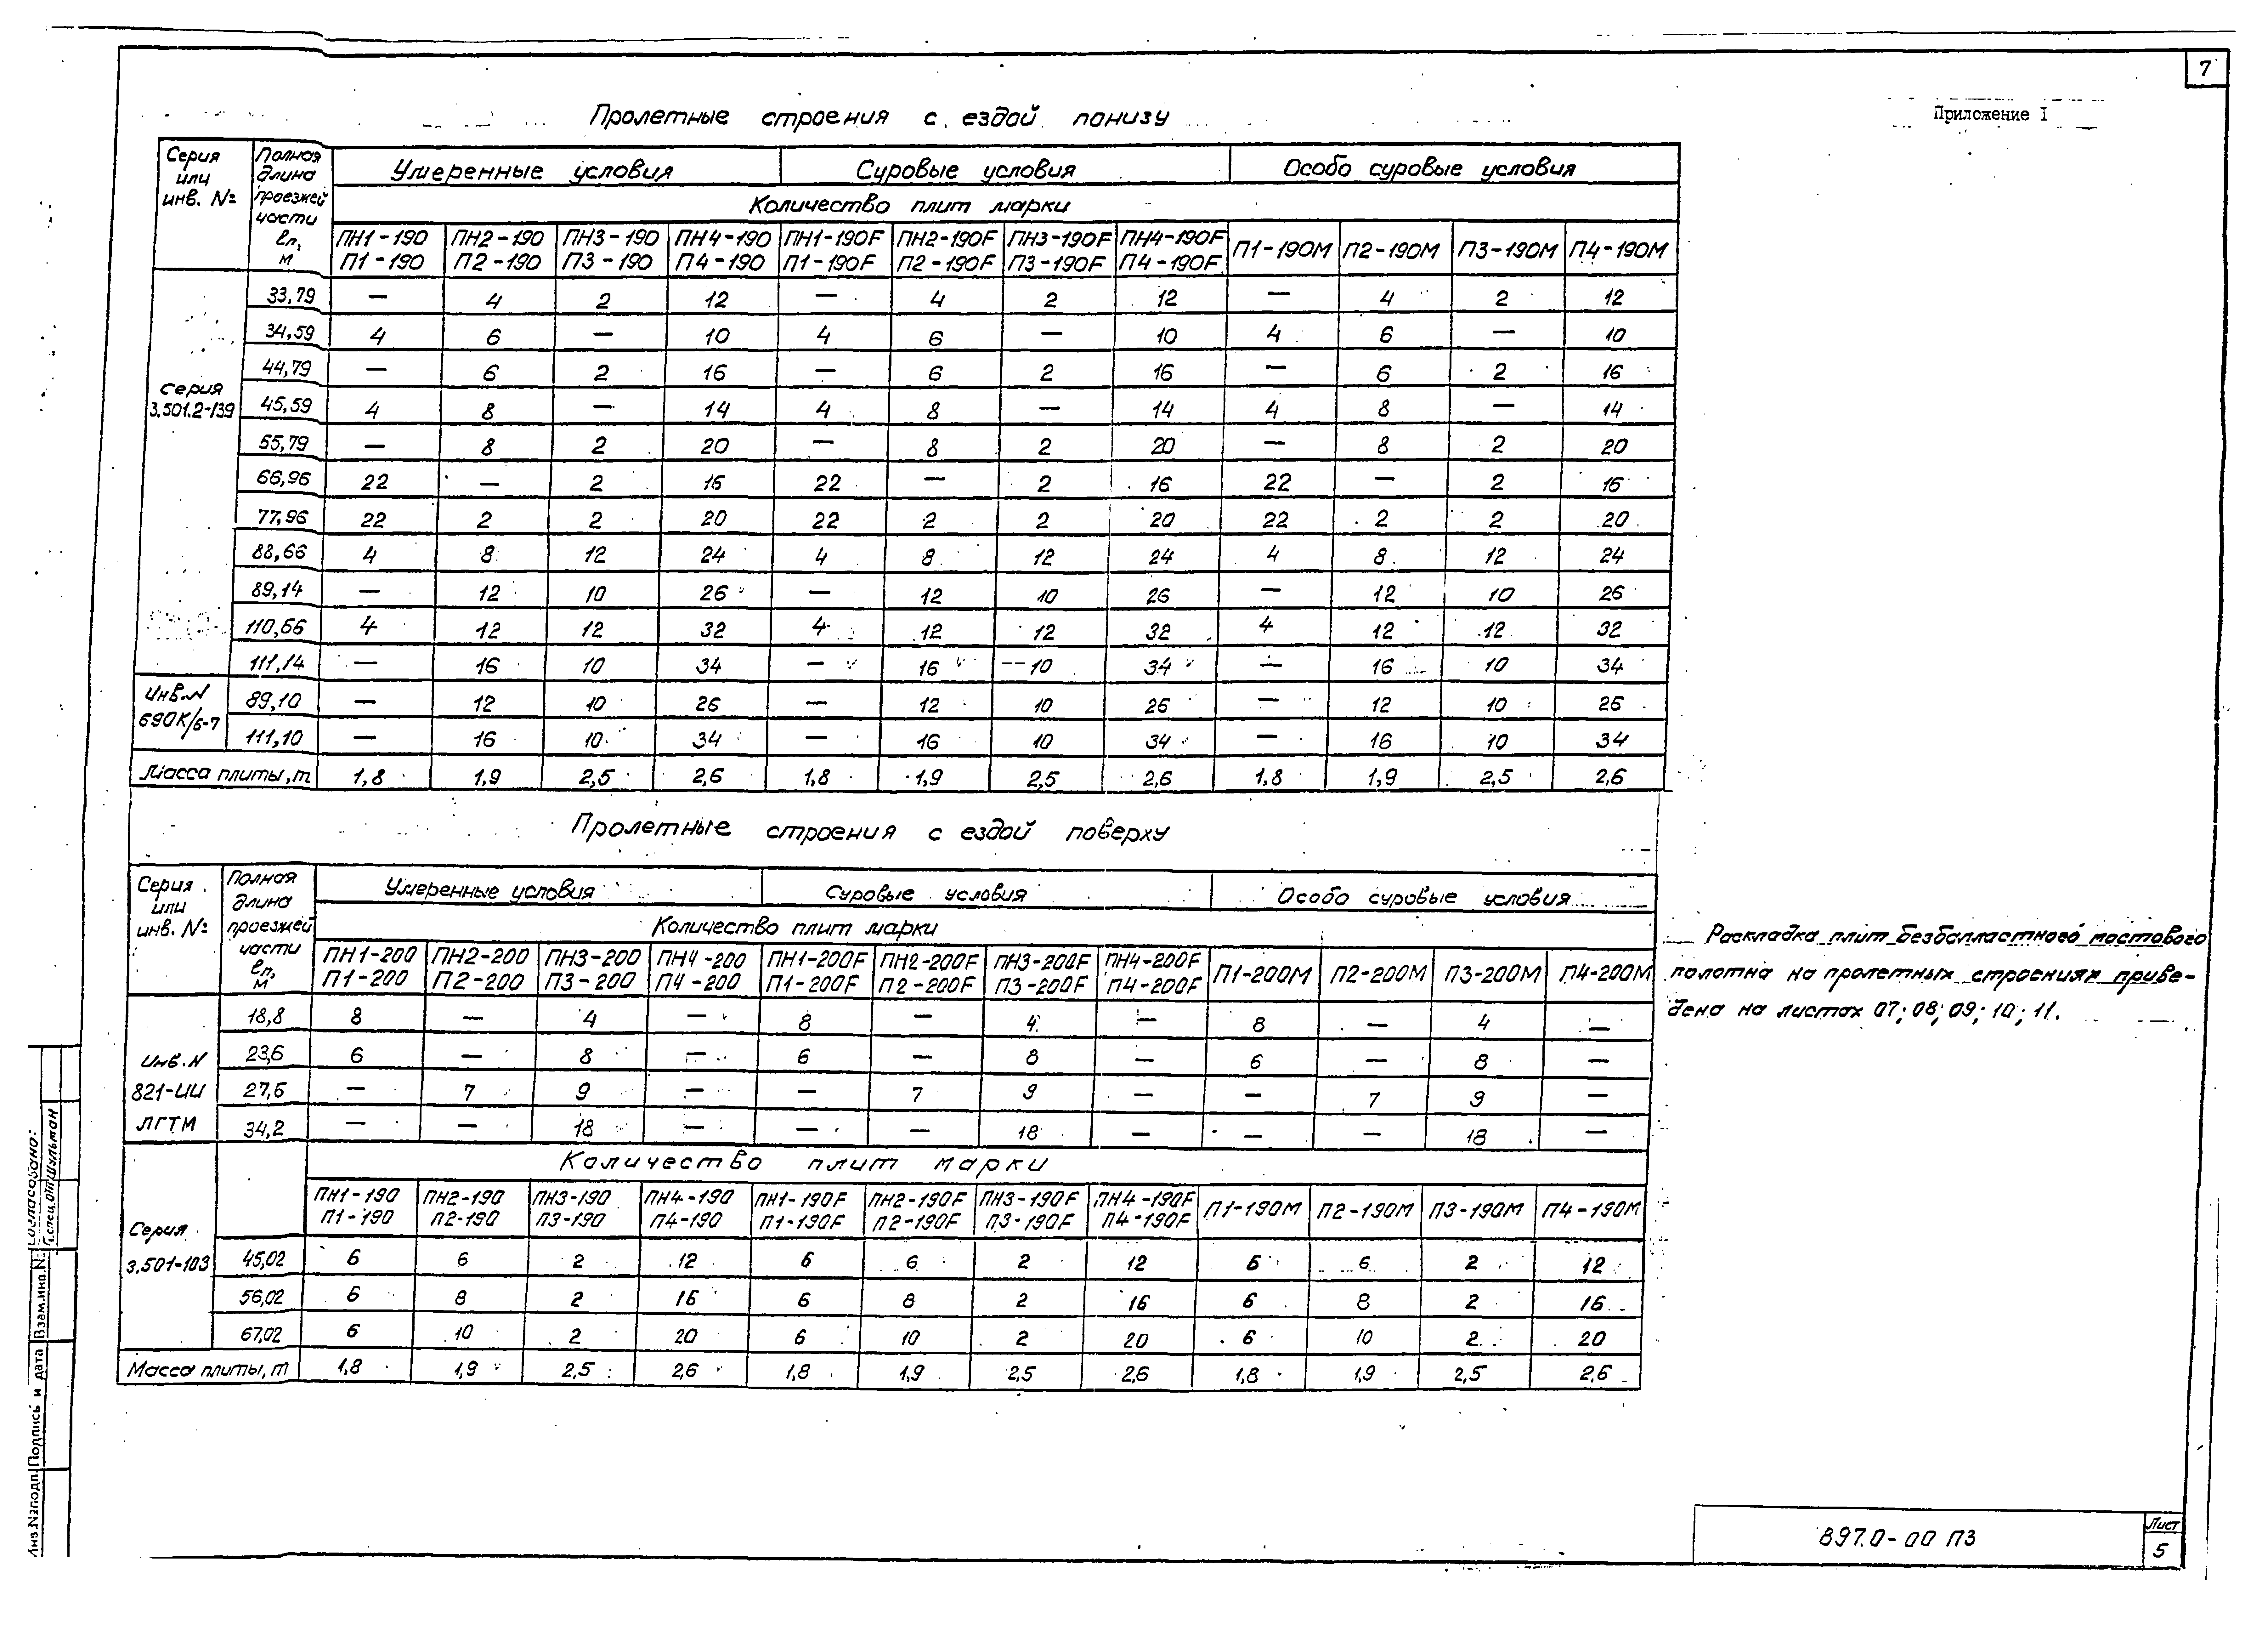 7
Приложение I
Пролетные строения с ездой понизу
Серия или инв. № Полная длина проезжей части ℓп, м Умеренные условия Суровые условия Особо суровые условия
Количество плит марки
ПН1-190 ПН2-190 ПН3-190 ПН4-190 ПН1-190F ПН2-190F ПН3-190F ПН4-190F П1-190М П2-190М П3-190М П4-190М
П1-190 П2-190 П3-190 П4-190 П1-190F П2-190F П3-190F П4-190F
серия 3.501.2-139
33,79 — 4 2 12 — 4 2 12 — 4 2 12
34,59 4 6 — 10 4 6 — 10 4 6 — 10
44,79 — 6 2 16 — 6 2 16 — 6 2 16
45,59 4 8 — 14 4 8 — 14 4 8 — 14
55,79 — 8 2 20 — 8 2 20 — 8 2 20
66,96 22 — 2 16 22 — 2 16 22 — 2 16
77,96 22 2 2 20 22 2 2 20 22 2 2 20
88,66 4 8 12 24 4 8 12 24 4 8 12 24
89,14 — 12 10 26 — 12 10 26 — 12 10 26
110,66 4 12 12 32 4 12 12 32 4 12 12 32
111,14 — 16 10 34 — 16 10 34 — 16 10 34
Инв. N 690К/6-7
89,10 — 12 10 26 — 12 10 26 — 12 10 26
111,10 — 16 10 34 — 16 10 34 — 16 10 34
Масса плиты, т 1,8 1,9 2,5 2,6 1,8 1,9 2,5 2,6 1,8 1,9 2,5 2,6
Пролетные строения с ездой поверху
Серия или инв. № Полная длина проезжей части ℓп, м Умеренные условия Суровые условия Особо суровые условия
Количество плит марки
ПН1-200 ПН2-200 ПН3-200 ПН4-200 ПН1-200F ПН2-200F ПН3-200F ПН4-200F П1-200М П2-200М П3-200М П4-200М
П1-200 П2-200 П3-200 П4-200 П1-200F П2-200F П3-200F П4-200F
Инв. N 821-ИИ ЛГТМ
18,8 8 — 4 — 8 — 4 — 8 — 4 —
23,6 6 — 8 — 6 — 8 — 6 — 8 —
27,6 — 7 9 — — 7 9 — — 7 9 —
34,2 — — 18 — — — 18 — — — 18 —
Количество плит марки
ПН1-190 ПН2-190 ПН3-190 ПН4-190 ПН1-190F ПН2-190F ПН3-190F ПН4-190F П1-190М П2-190М П3-190М П4-190М
П1-190 П2-190 П3-190 П4-190 П1-190F П2-190F П3-190F П4-190F
Серия 3.501-103
45,02 6 6 2 12 6 6 2 12 6 6 2 12
56,02 6 8 2 16 6 8 2 16 6 8 2 16
67,02 6 10 2 20 6 10 2 20 6 10 2 20
Масса плиты, т 1,8 1,9 2,5 2,6 1,8 1,9 2,5 2,6 1,8 1,9 2,5 2,6
Раскладка плит безбалластного мостового
полотна на пролетных строениях приве-
дена на листах 07; 08; 09; 10; 11.
Согласовано:
Гл.спец.отп Шульман
Взам.инв.N
Подпись и дата
Инв.№подл.
897.0-00 ПЗ
Лист
5